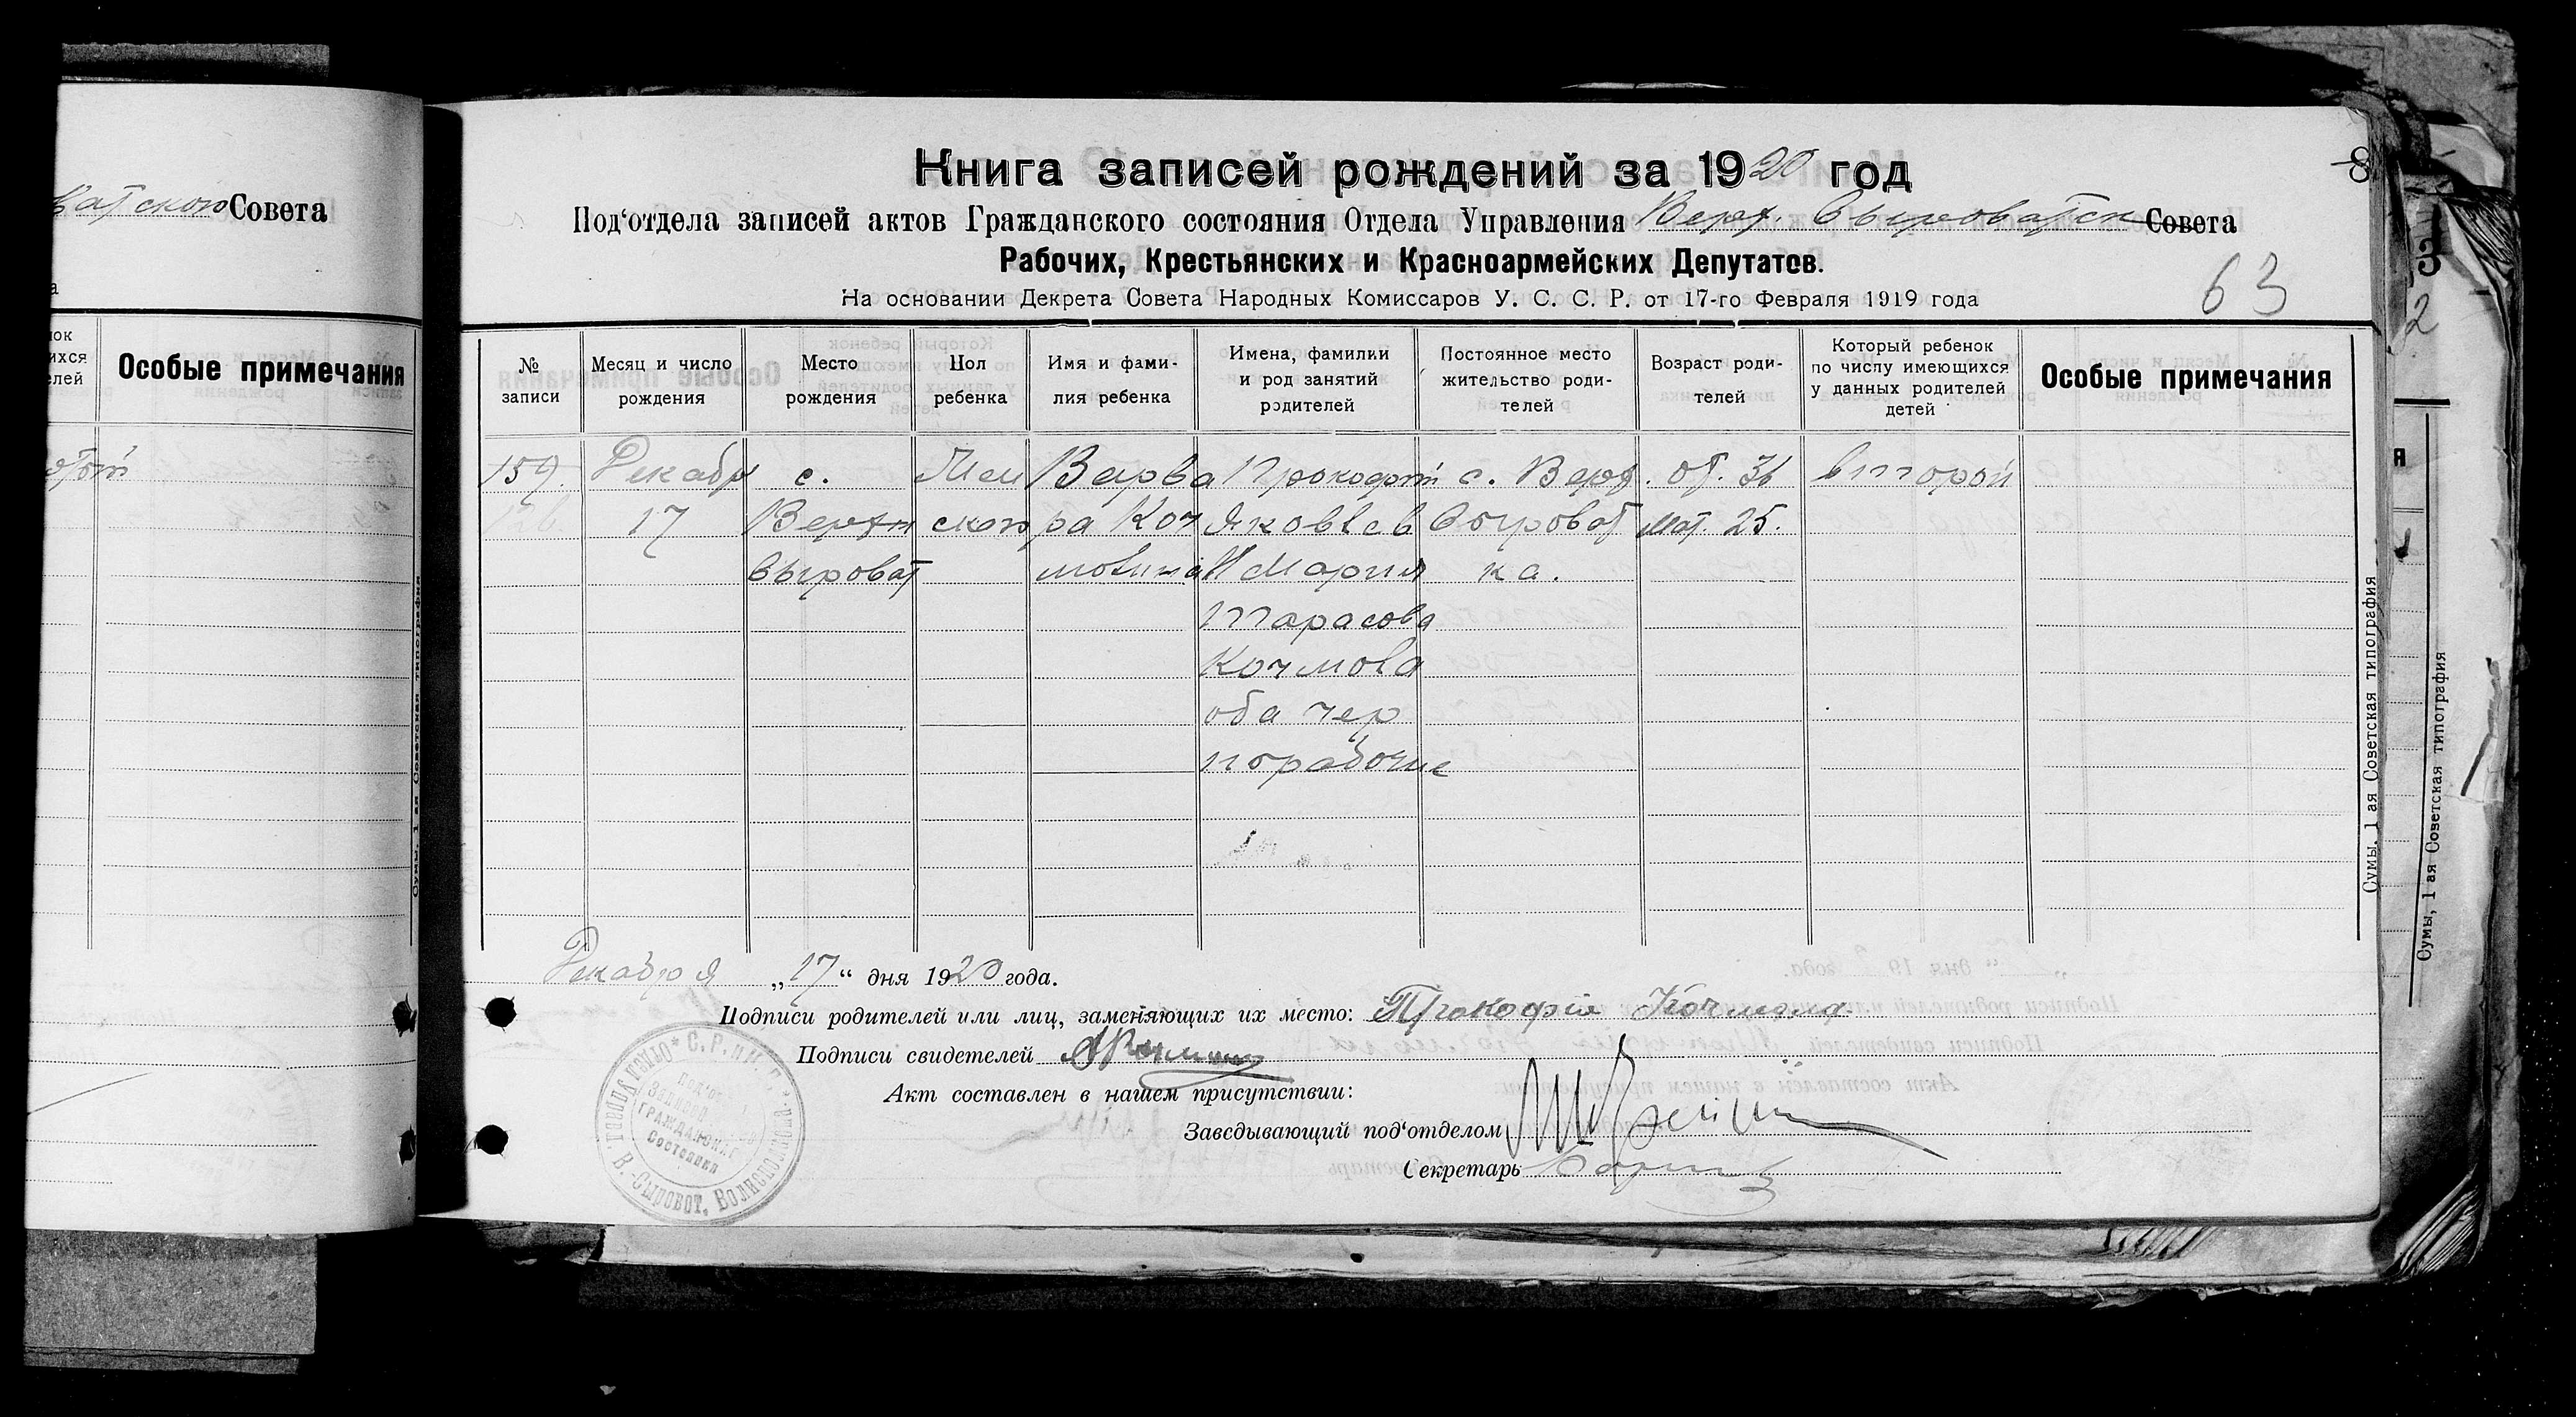 ватского Совета
Особые примечания
Сумы, 1 ая Советская типография
Книга записей рождений за 1920 год
Под‘отдела записей актов Гражданского состояния Отдела Управления Верх. Сыроватск Совета
Рабочих, Крестьянских и Красноармейских Депутатов.
На основании Декрета Совета Народных Комиссаров У. С. С. Р. от 17-го Февраля 1919 года
63
№ записи
Месяц и число рождения
Место рождения
Пол ребенка
Имя и фами-
лия ребенка
Имена, фамилии
и род занятий
родителей
Постоянное место
жительство роди-
телей
Возраст роди-
телей
Который ребенок
по числу имеющихся
у данных родителей
детей
Особые примечания
159. Декабр с. Жен Варва Прокофий с. Верх. от. 36 второй
126 17 Верхн ского ра Коч Яковлев Сыроват мат. 25.
Сыроват мовина И Мария ка.
Тарасова
Кочмова
оба чер
норабочие
Сумы, 1 ая Советская типография
Декабря „17“ дня 1920 года.
Подписи родителей или лиц, заменяющих их место: Прокофий
Подписи свидетелей
Акт составлен в нашем присутствии:
Заведывающий под‘отделом
Секретарь
Записи
Гражданск
Состояния
В.-Сыроват. Волисполко
Сумы, 1 ая Советская типография